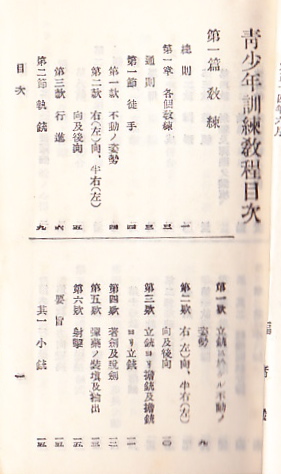 青少年訓練教程目次
第一篇 敎練
總則 一
第一章 各個敎練 三
通則 三
第一節 徒手 四
第一款 不動ノ姿勢 四
第二款 右(左)向、半右(左)
向及後向 五
第三款 行進 六
第二節 執銃 九
第一款 立銃ニ於ケル不動ノ
姿勢 九
第二款 右(左)向、半右(左)
向及後向 一〇
第三款 立銃ヨリ擔銃及擔銃
ヨリ立銃 一一
第四款 著劍及脫劍
第五款 彈藥ノ裝塡及抽出
第六款 射擊 一五
要旨 一五
其一 小銃 一五
目次 一